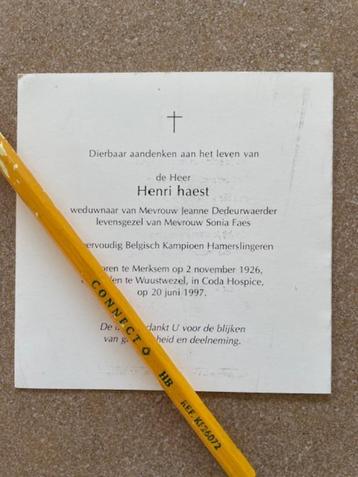 Dierbaar aandenken aan het leven van
de Heer
Henri haest
weduwnaar van Mevrouw Jeanne Dedeurwaerder
levensgezel van Mevrouw Sonia Faes
ervoudig Belgisch Kampioen Hamerslingeren
oren te Merksem op 2 november 1926,
den te Wuustwezel, in Coda Hospice,
op 20 juni 1997.
De dankt U voor de blijken
van heid en deelneming.
CONNECT HB REF. KF26072